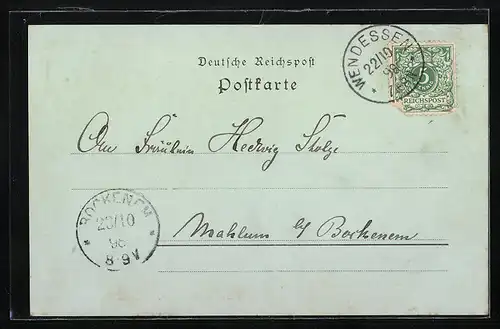 Deutsche Reichspost
Postkarte
WENDESSEN
22/10
98
5
REICHSPOST
An Fräulein Hedwig Stolze
BOCKENEM
23/10
98
8-9V
Mahlum b/ Bockenem